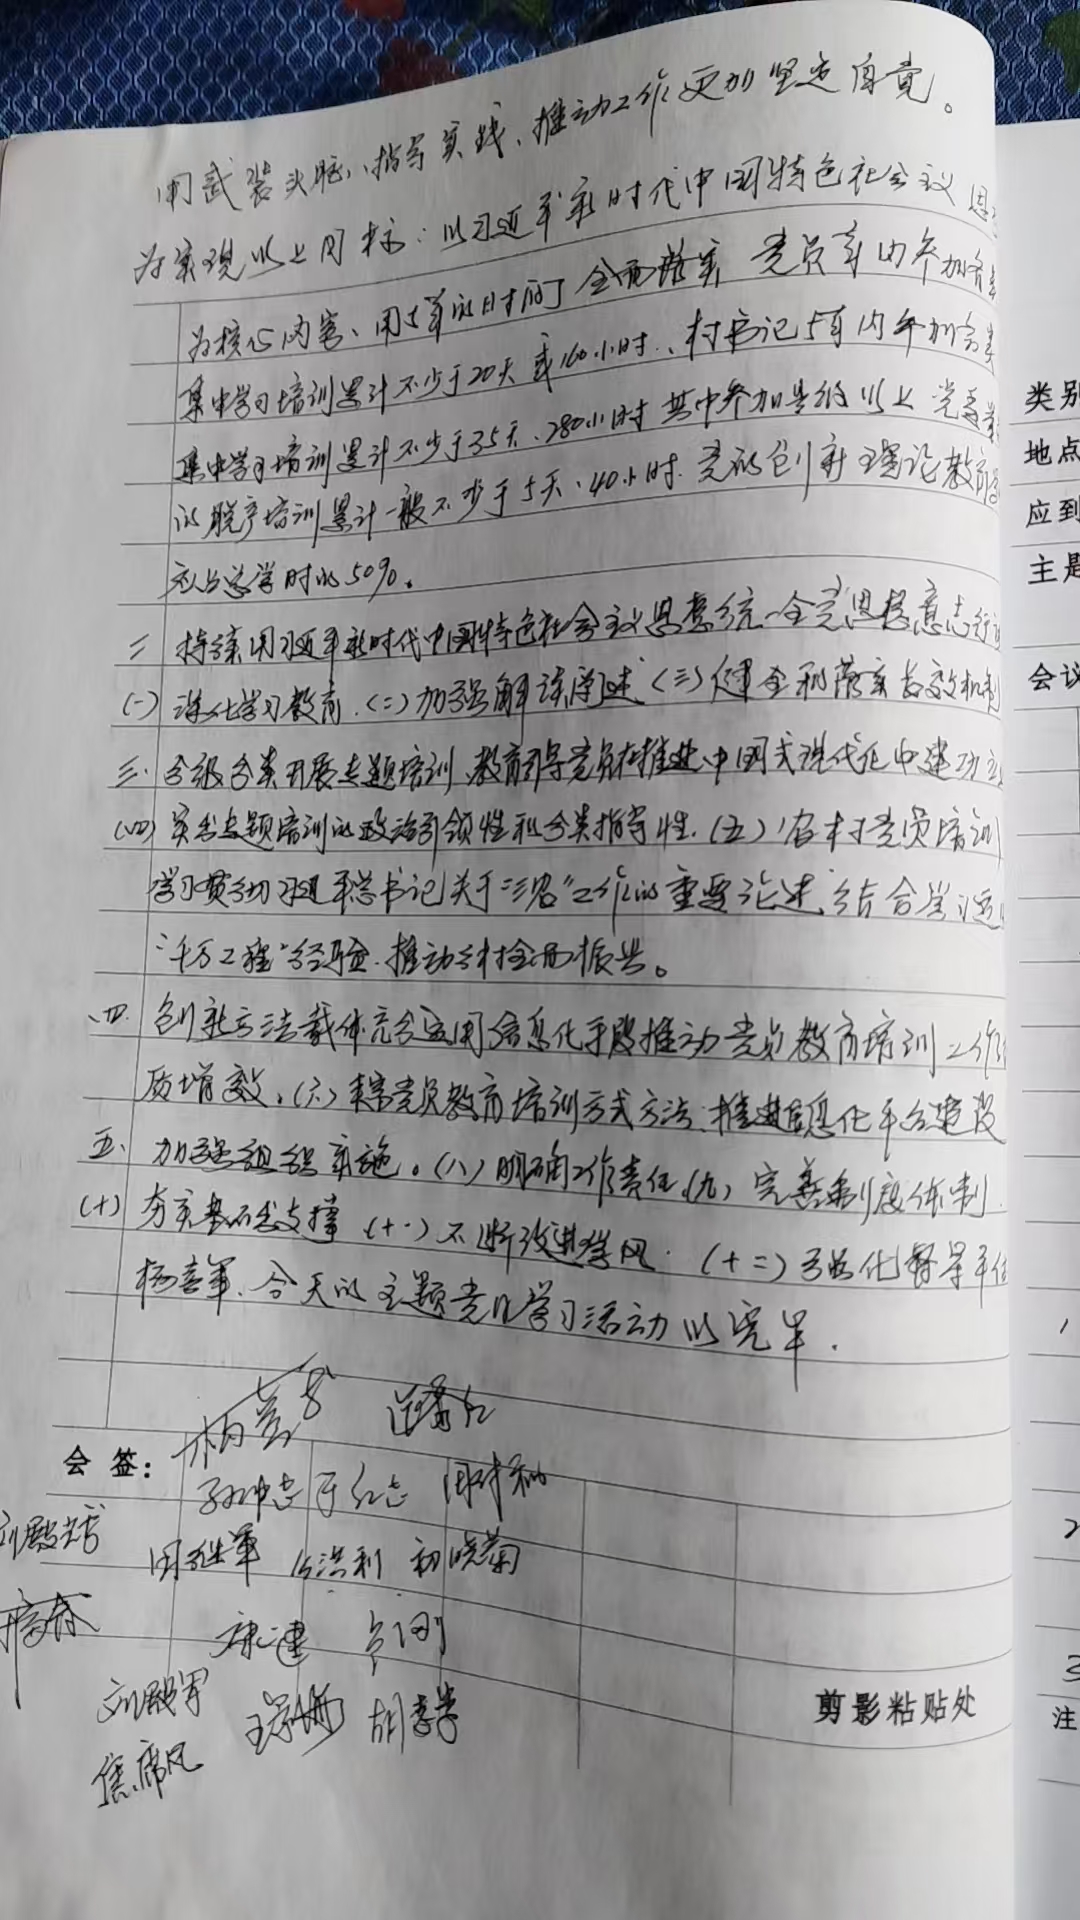 用武装头脑、指导实践、推动工作更加坚定自觉。
为实现以上目标：以习近平新时代中国特色社会主义思
为核心内容、用5年的时间 全面落实 党员年内参加各类
集中学习培训累计不少于20天或160小时、村书记5年内参加各类
集中学习培训累计不少于35天、280小时 其中参加县级以上党委
的脱产培训累计一般不少于5天、40小时. 党的创新理论教育
应占总学时的50%。
二 持续用习近平新时代中国特色社会主义思想统一全党思想意志行
(一) 深化学习教育.(二)加强解读阐述(三)健全和落实长效机制
三. 分级分类开展专题培训、教育引导党员在推进中国式现代化中建功立
(四) 突出专题培训的政治引领性和分类指导性.(五)农村党员培训
学习贯彻习近平总书记关于"三农"工作的重要论述,结合学习运
"千万工程"经验.推动乡村全面振兴。
四. 创新方法载体充分运用信息化手段推动党员教育培训工作
质增效.(六)丰富党员教育培训方式方法.推进信息化平台建设
五. 加强组织实施。(八)明确工作责任.(九)完善制度体制.
(十) 夯实基础支撑 (十一)不断改进学风. (十二)强化督导
杨喜军. 今天的主题党日学习活动 以完毕.
会 签：
孙冲志 于红志
周继军 洪利 初晓菊
康建 刚
刘殿军 胡
焦席风
剪影粘贴处
类别
地点
应到
主题
会议
1
2
3
注